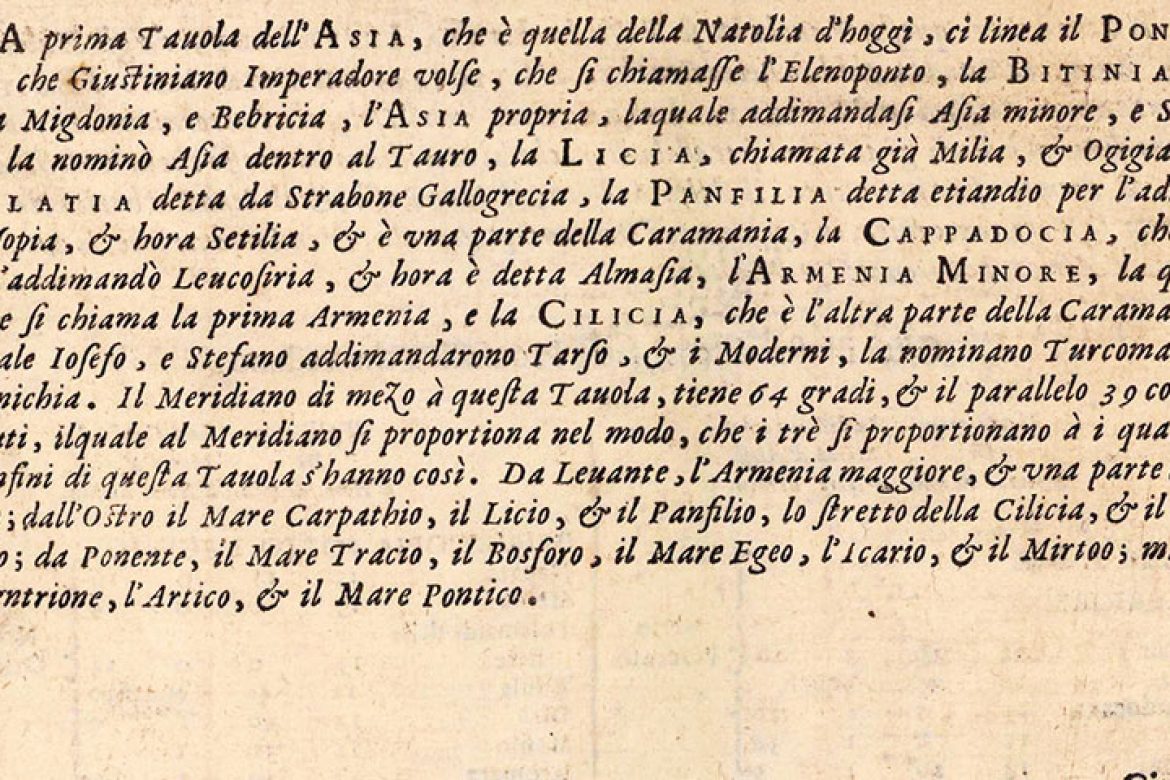 A prima Tauola dell'ASIA, che è quella della Natolia d'hoggi, ci linea il PON
che Giuſtiniano Imperadore volſe, che ſi chiamaſſe l'Elenoponto, la BITINIA
Migdonia, e Bebricia, l'ASIA propria, laquale addimandaſi Aſia minore, e S
la nominò Aſia dentro al Tauro, la LICIA, chiamata già Milia, & Ogigia
LATIA detta da Strabone Gallogrecia, la PANFILIA detta etiandio per l'ad
opia, & hora Setilia, & è vna parte della Caramania, la CAPPADOCIA, che
'addimandò Leucoſiria, & hora è detta Almaſia, l'ARMENIA MINORE, la q
e ſi chiama la prima Armenia, e la CILICIA, che è l'altra parte della Carama
ale Ioſefo, e Stefano addimandarono Tarſo, & i Moderni, la nominano Turcoma
nichia. Il Meridiano di mezo à queſta Tauola, tiene 64 gradi, & il parallelo 39 co
uti, ilquale al Meridiano ſi proportiona nel modo, che i trè ſi proportionano à i qua
nfini di queſta Tauola s'hanno così. Da Leuante, l'Armenia maggiore, & vna parte
; dall'Oſtro il Mare Carpathio, il Licio, & il Panfilio, lo ſtretto della Cilicia, & il
o; da Ponente, il Mare Tracio, il Bosforo, il Mare Egeo, l'Icario, & il Mirtoo; m
entrione, l'Artico, & il Mare Pontico.